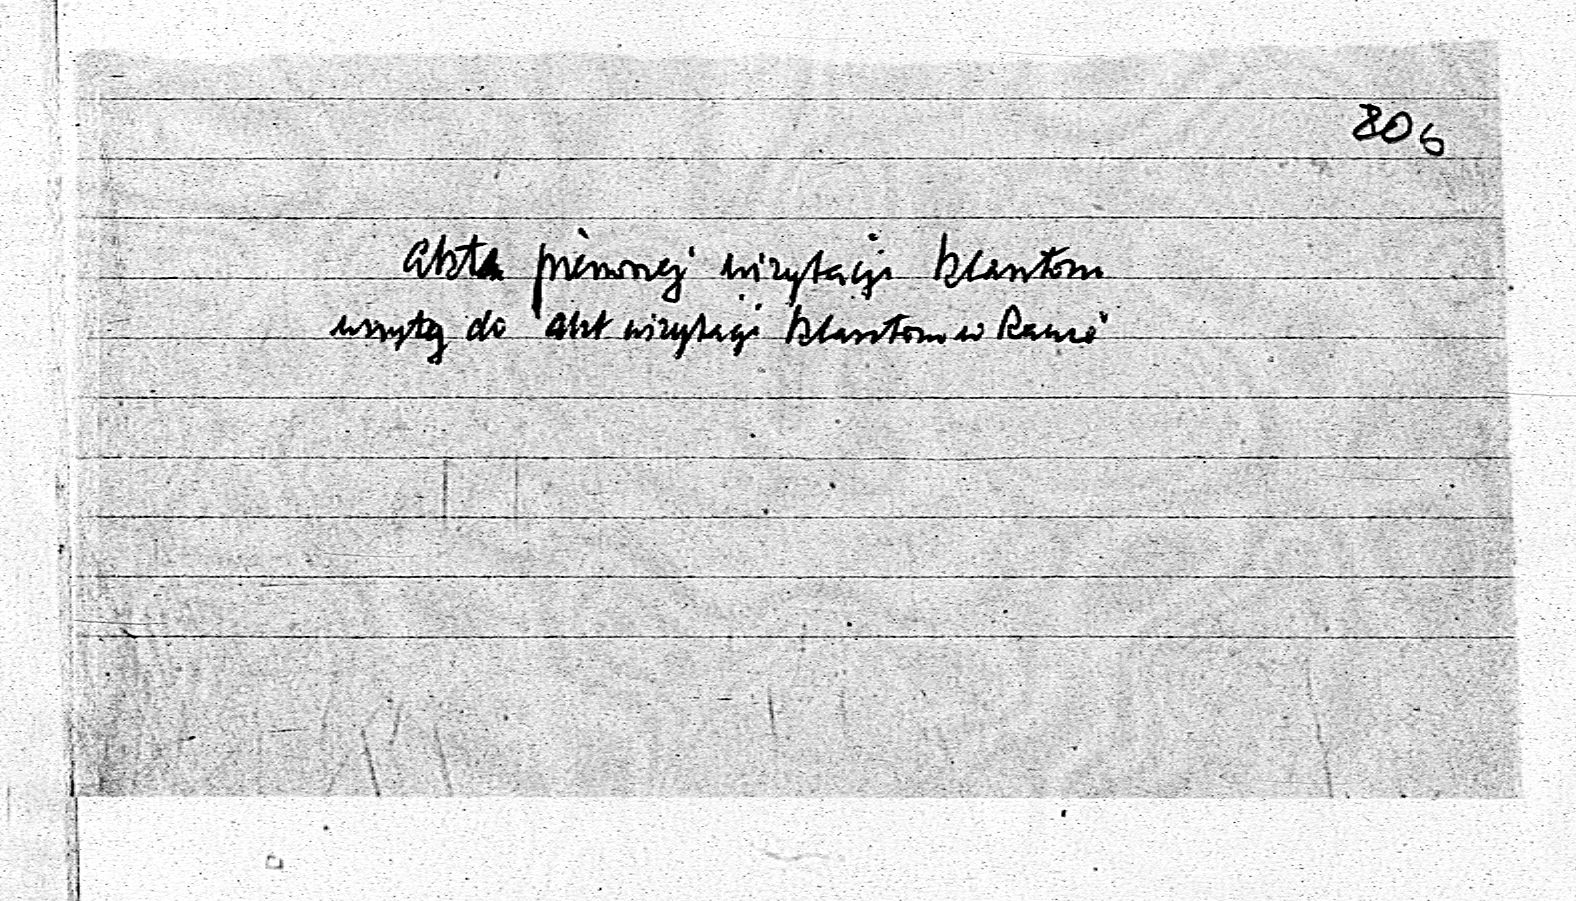 806
Akta pierwszej wizytacji klasztoru
wszyte do akt wizytacji klasztoru w